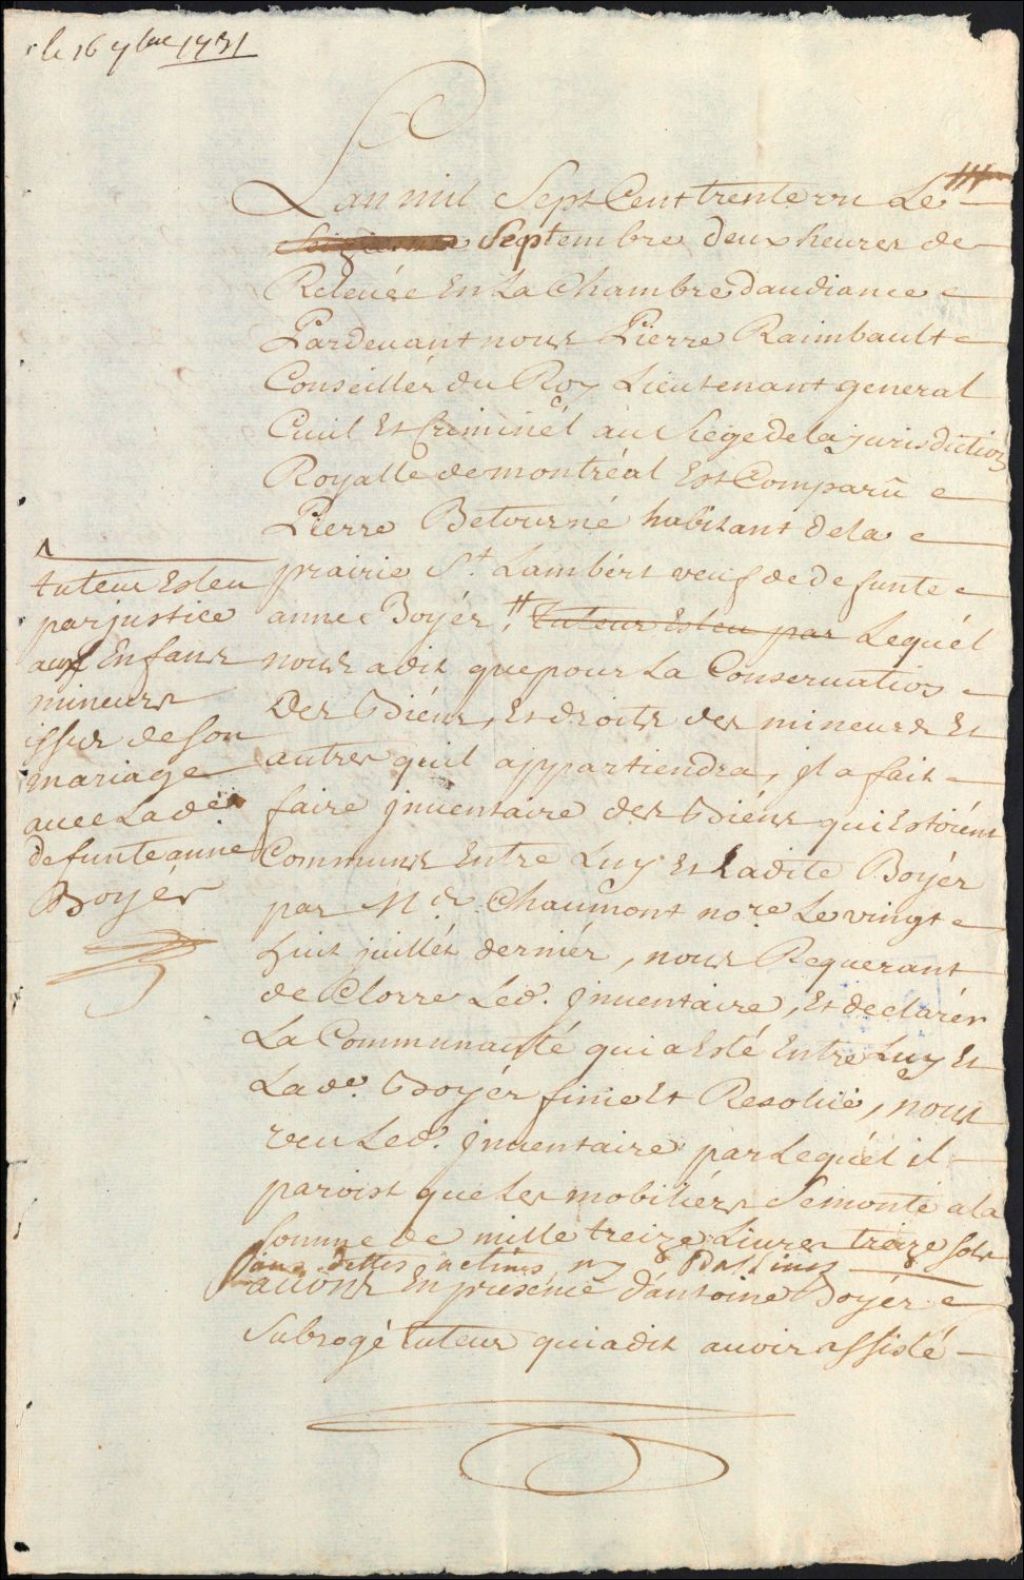 le 16 7bre 1731
Lan mil Sept Cent trente un Le
Seiziesme Septembre deux heures de
Releuée En La Chambre daudiance
Pardeuant nous Pierre Raimbault
Conseillér du Roy Lieutenant general
Ciuil Et Criminél au Siege de la jurisdiction
Royalle de montréal Est Comparu
Pierre Betourné habitant de la
prairie St. Lambért veuf de defunte
anne Boyér, tuteur Esleu par Lequél
nous a dit que pour La Conseruation
Des Biéns, Et droits des mineurs Et
autres quil appartiendra, jl a fait
faire jnuentaire des Biéns qui Estoient
Communs Entre Luy Et Ladite Boyér
par Me. Chaumont nore. Le vingt
huit juillét derniér, nous Requerant
de Clorre Led. jnuentaire, Et declarér
La Communauté qui a Esté Entre Luy Et
Lade. Boyér finie Et Resolüe, nous
veu Led. jnuentaire par Lequél il
paroist que Les mobiliérs Se monte a la
Somme de mille treize Liures treize sols
sans dettes actiues ny Passiues
auons En présence d'antoine Boyér
Subrogé tuteur qui a dit auoir assisté
tuteur Esleu
par justice
aux Enfans
mineurs
issus de son
mariage
auec Lade.
defunte anne
Boyér